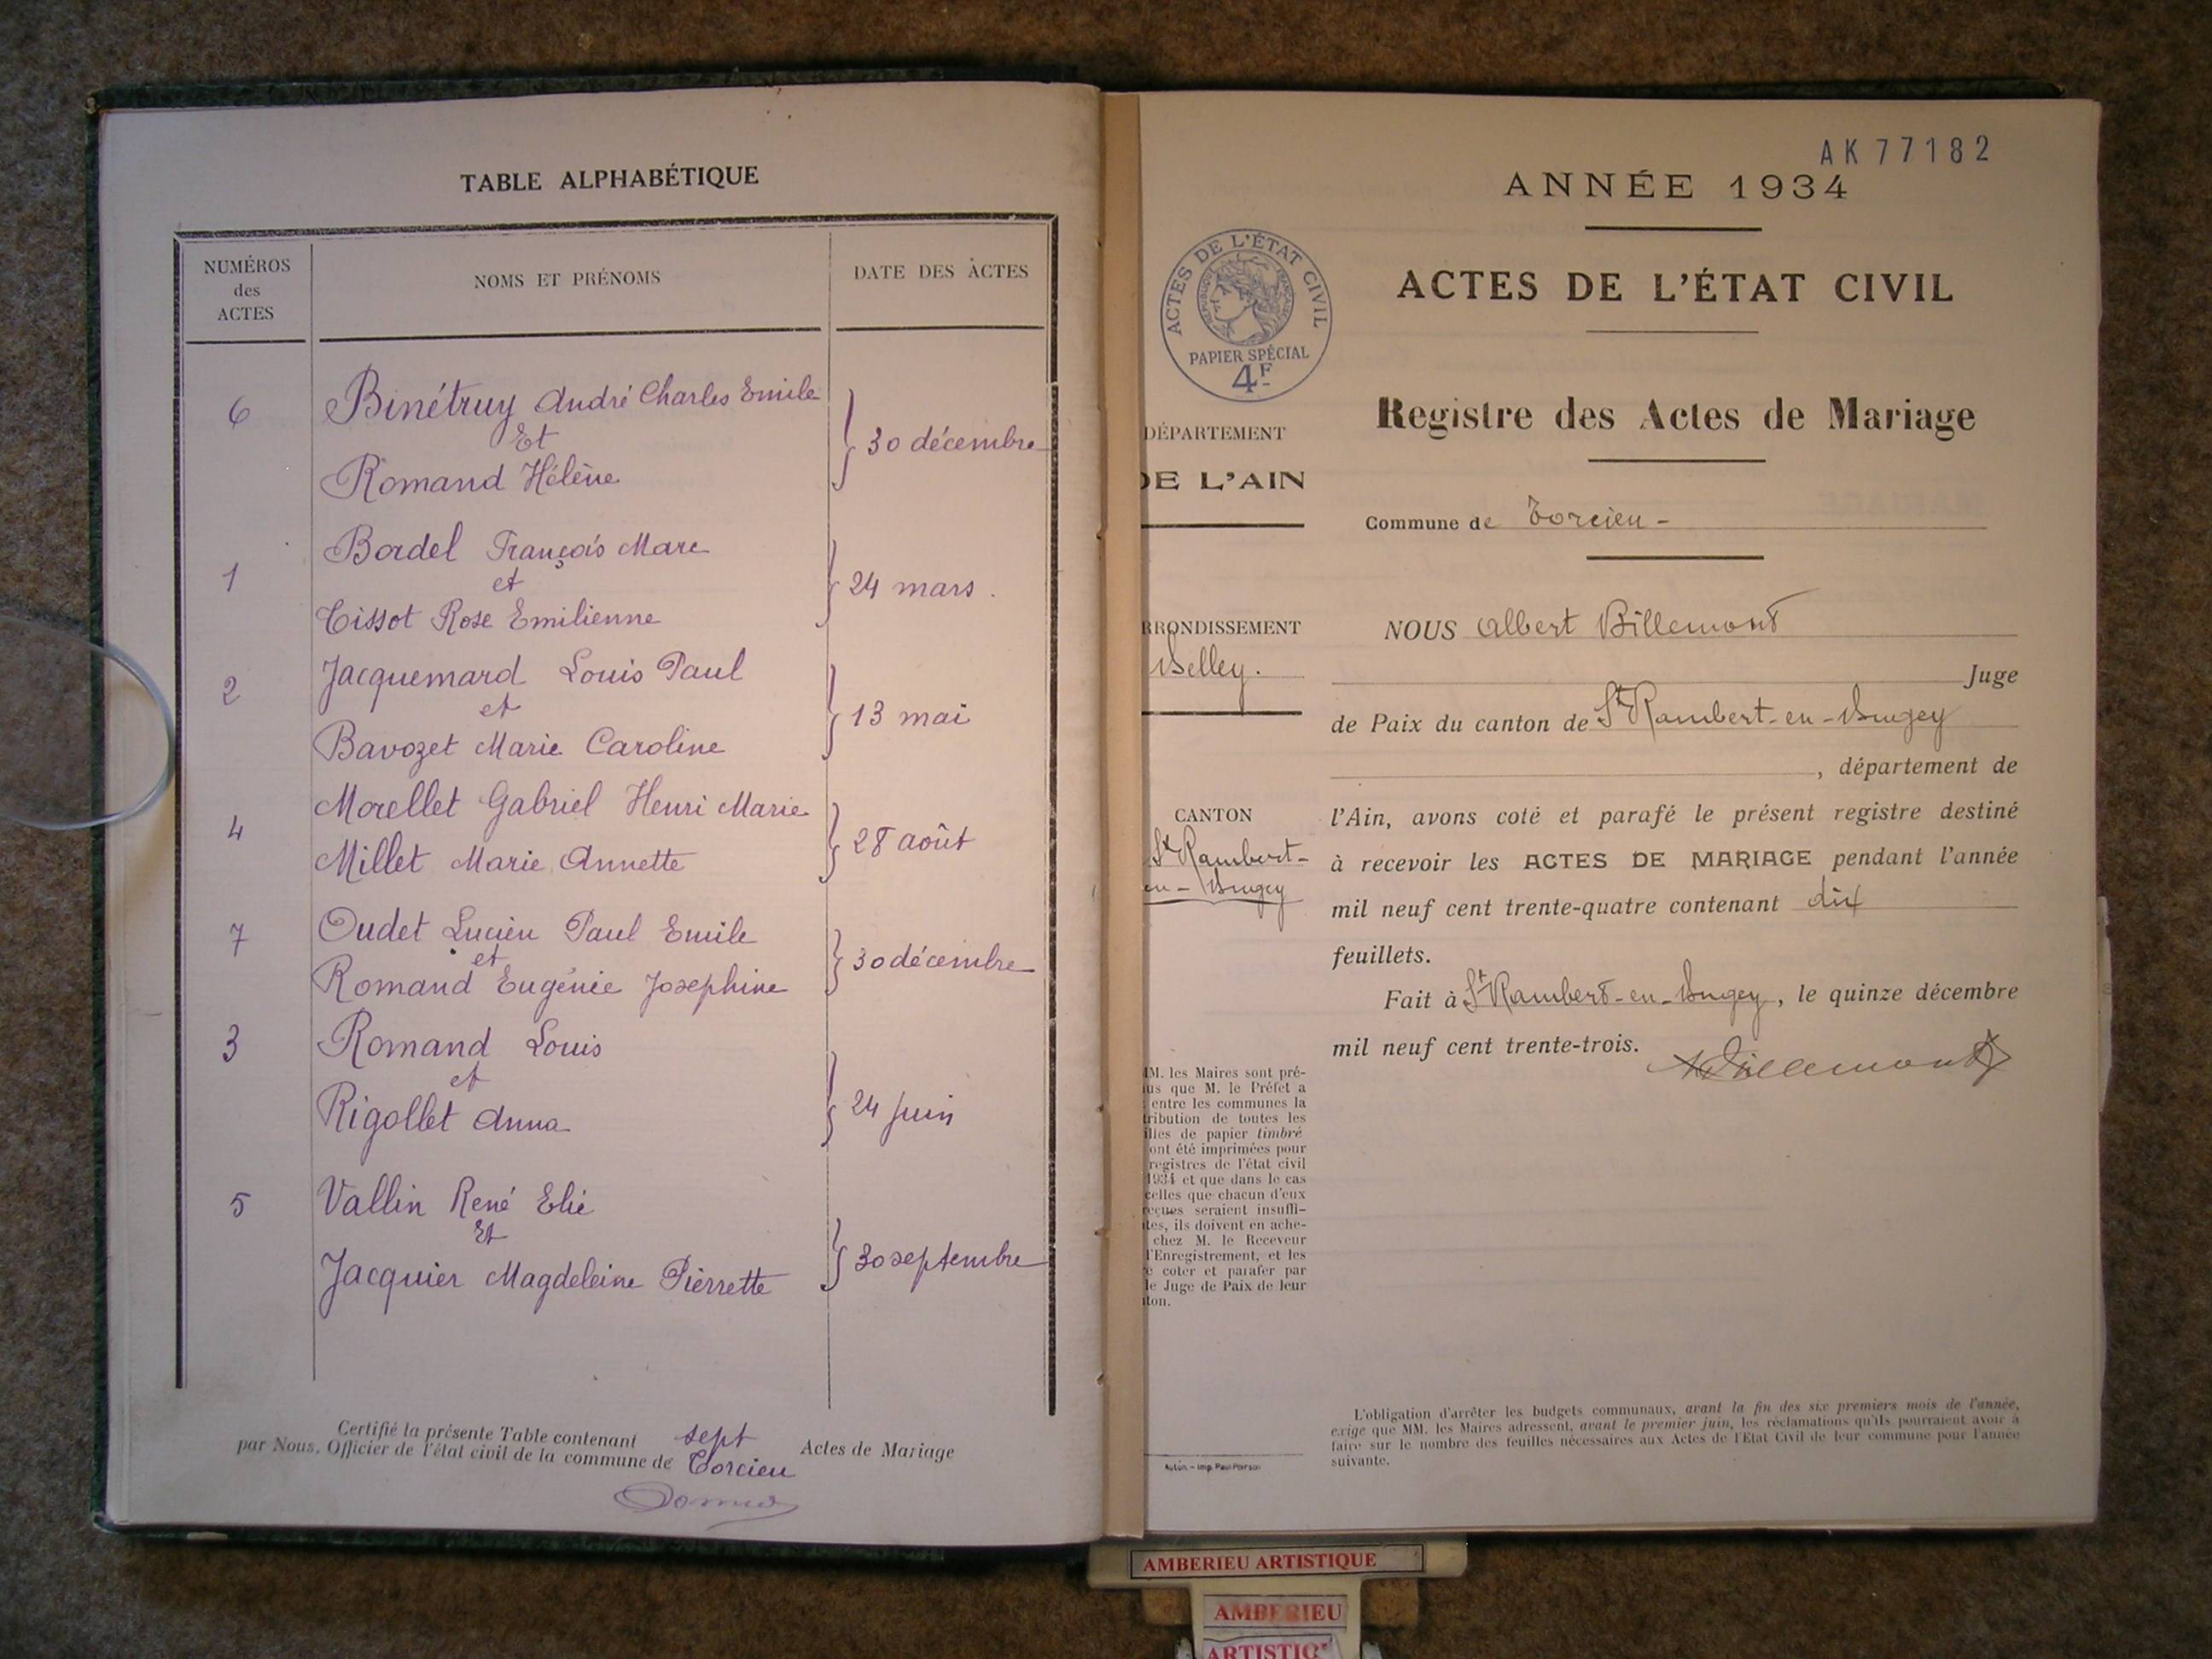 TABLE ALPHABÉTIQUE
NUMÉROS
des
ACTES
NOMS ET PRÉNOMS
DATE DES ACTES
6
Binétruy André Charles Emile
Et
Romand Hélène
30 décembre
1
Bordel François Marc
et
Tissot Rose Emilienne
24 mars.
2
Jacquemard Louis Paul
et
Bavozet Marie Caroline
13 mai
4
Morellet Gabriel Henri Marie
Millet Marie Annette
28 août
7
Oudet Lucien Paul Emile
et
Romand Eugénie Josephine
30 décembre
3
Romand Louis
et
Rigollet Anna
24 juin
5
Vallin René Elie
Et
Jacquier Magdeleine Pierrette
30 septembre
Certifié la présente Table contenant sept Actes de Mariage
par Nous, Officier de l'état civil de la commune de Torcieu
AK77182
ANNÉE 1934
ACTES DE L'ÉTAT CIVIL
Registre des Actes de Mariage
Commune de Torcieu -
ACTES DE L'ÉTAT CIVIL
RÉPUBLIQUE FRANÇAISE
PAPIER SPÉCIAL
4F
DÉPARTEMENT
DE L'AIN
RRONDISSEMENT
Belley.
CANTON
St Rambert-
en-Bugey
MM. les Maires sont pré-
us que M. le Préfet a
entre les communes la
tribution de toutes les
illes de papier timbré
ont été imprimées pour
registres de l'état civil
1934 et que dans le cas
celles que chacun d'eux
reçues seraient insuffi-
tes, ils doivent en ache-
chez M. le Receveur
l'Enregistrement, et les
e coter et parafer par
le Juge de Paix de leur
ton.
Autun. - Imp. Paul Poirson
NOUS Albert Billemont
Juge
de Paix du canton de St Rambert-en-Bugey
, département de
l'Ain, avons coté et parafé le présent registre destiné
à recevoir les ACTES DE MARIAGE pendant l'année
mil neuf cent trente-quatre contenant dix
feuillets.
Fait à St Rambert-en-Bugey, le quinze décembre
mil neuf cent trente-trois.
ABillemont
L'obligation d'arrêter les budgets communaux, avant la fin des six premiers mois de l'année,
exige que MM. les Maires adressent, avant le premier juin, les réclamations qu'ils pourraient avoir à
faire sur le nombre des feuilles nécessaires aux Actes de l'Etat Civil de leur commune pour l'année
suivante.
AMBERIEU ARTISTIQUE
AMBERIEU
ARTISTIQ